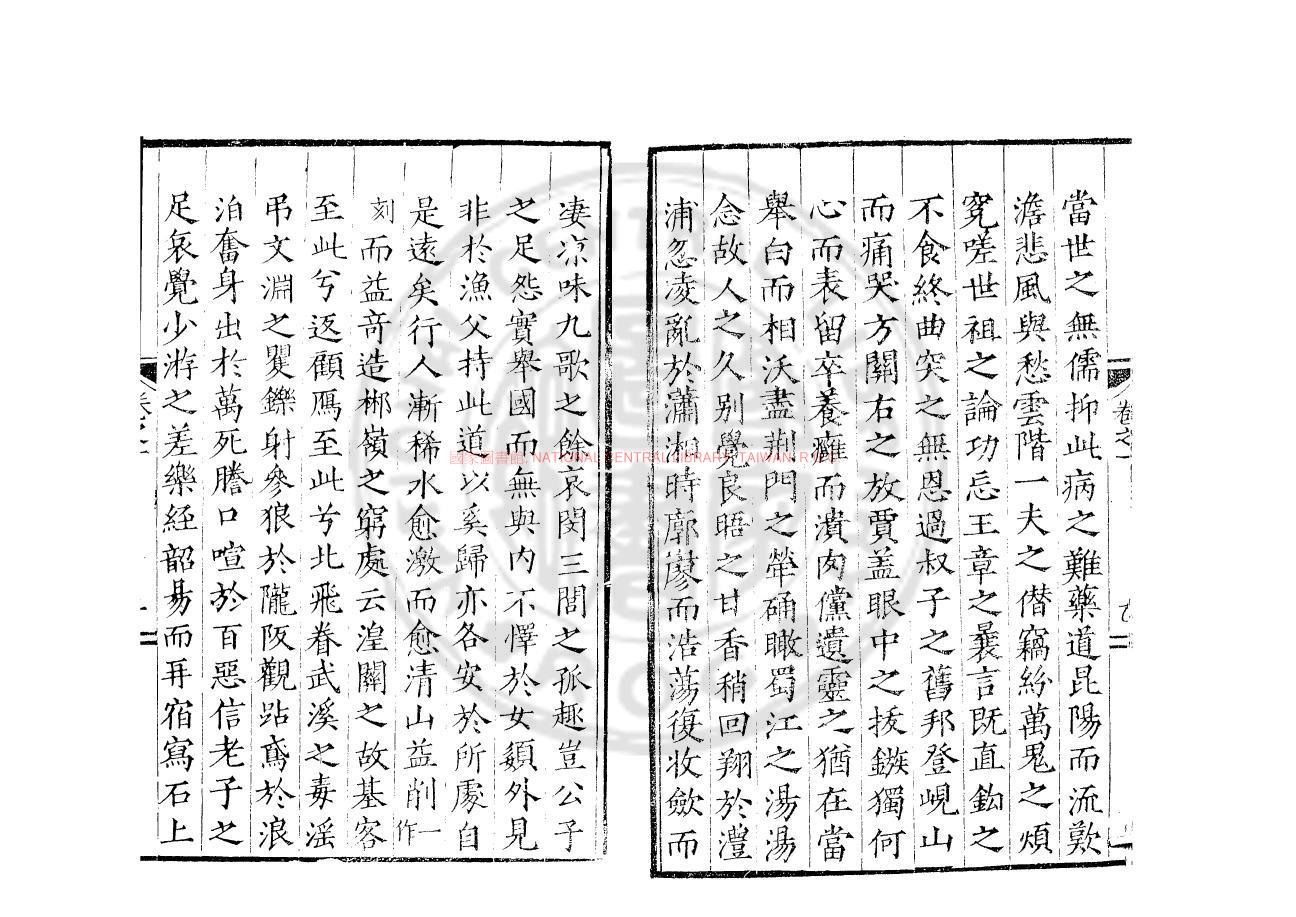 當世之無儒抑此病之難藥道昆陽而流歎
澹悲風與愁雲階一夫之僭竊紛萬鬼之煩
寃嗟世祖之論功忌王章之曩言既直鈎之
不食終曲突之無恩過叔子之舊邦登峴山
而痛哭方關右之放賈蓋眼中之拔鏃獨何
心而表留卒養癰而潰肉儻遺靈之猶在當
舉白而相沃盡荆門之犖确瞰蜀江之湯湯
念故人之久别覺良晤之甘香稍回翔於澧
浦忽凌亂於瀟湘時廓廖而浩蕩復收斂而
凄凉味九歌之餘哀閔三閭之孤趣豈公子
之足怨實舉國而無與内不懌於女嬃外見
非於漁父持此道以奚歸亦各安於所處自
是遠矣行人漸稀水愈激而愈清山益削一作
刻而益竒造郴嶺之窮處云湟關之故基客
至此兮返顧鴈至此兮北飛眷武溪之毒滛
弔文淵之矍鑠射參狼於隴阪觀跕鳶於浪
泊奮身出於萬死謄口喧於百惡信老子之
足哀覺少游之差樂經韶昜而再宿寫石上
國家圖書館 NATIONAL CENTRAL LIBRARY, TAIWAN, R.O.C.